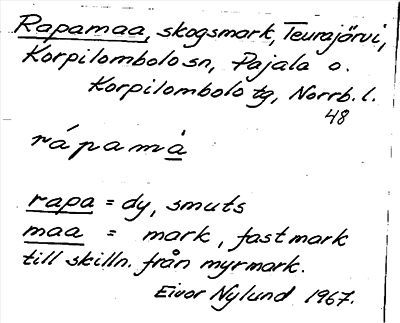 Rapamaa, skogsmark, Teurajärvi,
Korpilombolo sn, Pajala o.
Korpilombolo tg, Norrb. l.
48
rápamà
rapa = dy, smuts
maa = mark, fast mark
till skilln. från myrmark.
Eivor Nylund 1967.